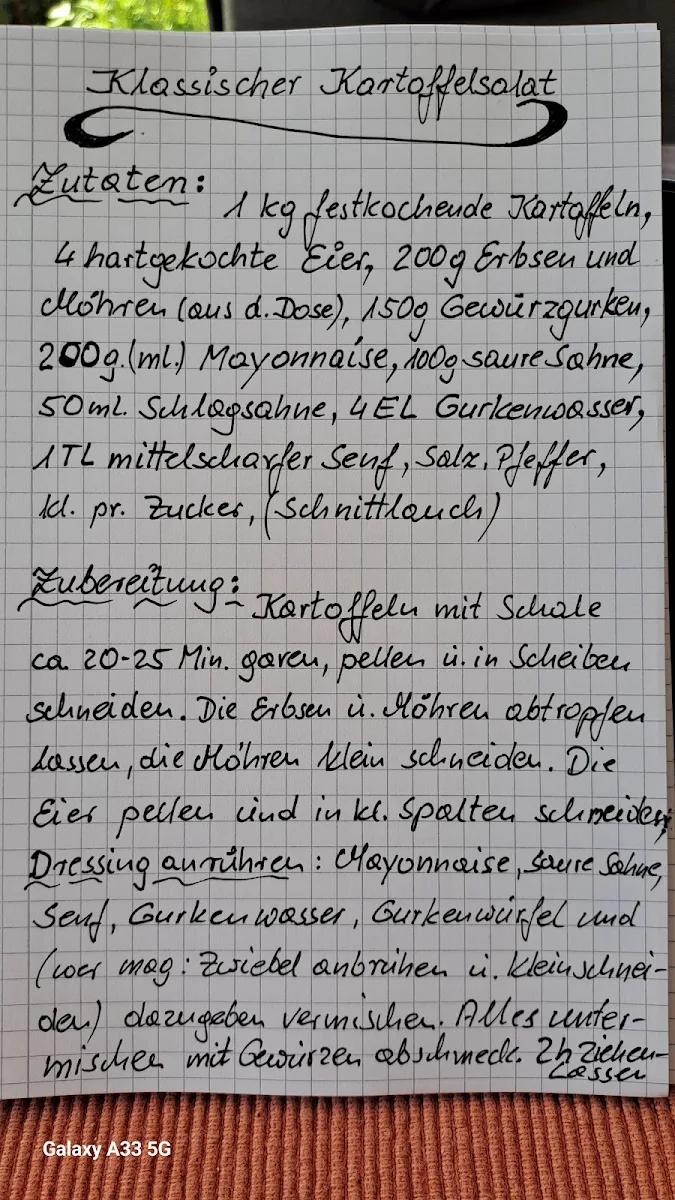 Klassischer Kartoffelsalat
Zutaten:
1 kg festkochende Kartoffeln,
4 hartgekochte Eier, 200g Erbsen und
Möhren (aus d. Dose), 150g Gewürzgurken,
200g.(ml.) Mayonnaise, 100g saure Sahne,
50ml. Schlagsahne, 4 EL Gurkenwasser,
1 TL mittelscharfer Senf, Salz, Pfeffer,
kl. pr. Zucker, (Schnittlauch)
Zubereitung: Kartoffeln mit Schale
ca. 20-25 Min. garen, pellen u. in Scheiben
schneiden. Die Erbsen u. Möhren abtropfen
lassen, die Möhren klein schneiden. Die
Eier pellen und in kl. Spalten schneiden,
Dressing anrühren: Mayonnaise, saure Sahne,
Senf, Gurkenwasser, Gurkenwürfel und
(wer mag: Zwiebel anbrühen u. kleinschnei-
den) dazugeben vermischen. Alles unter-
mischen mit Gewürzen abschmeck. 2h ziehen-
lassen
Galaxy A33 5G